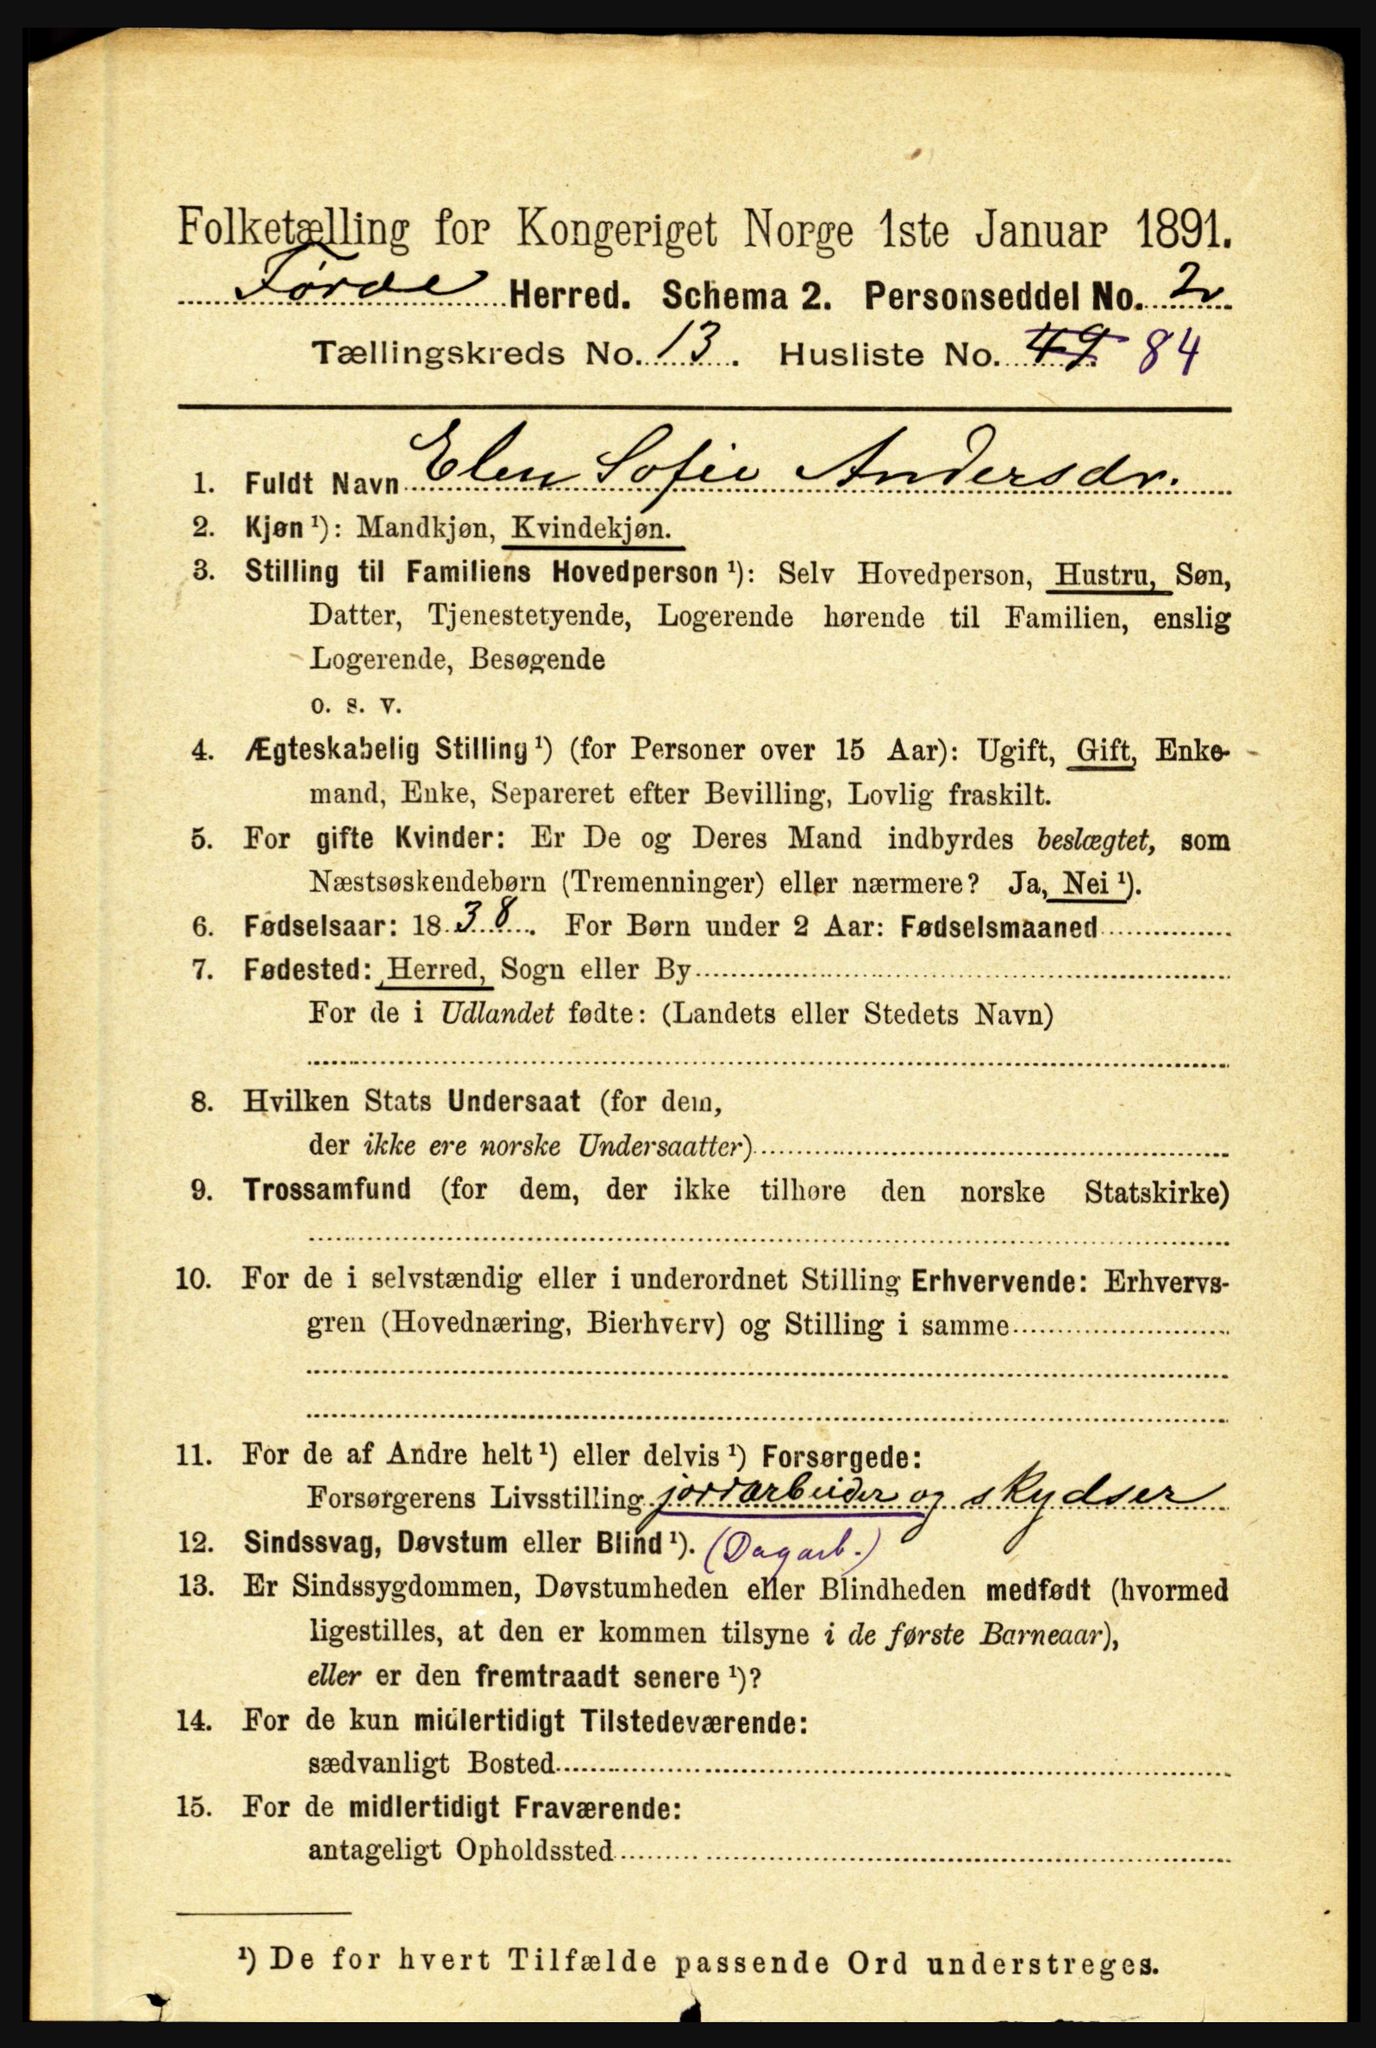 Folketælling for Kongeriget Norge 1ste Januar 1891.
Førde Herred. Schema 2. Personseddel No. 2
Tællingskreds No. 13. Husliste No. 49 84
1. Fuldt Navn Elen Sofie Andersdr.
2. Kjøn ¹): Mandkjøn, Kvindekjøn.
3. Stilling til Familiens Hovedperson ¹): Selv Hovedperson, Hustru, Søn,
Datter, Tjenestetyende, Logerende hørende til Familien, enslig
Logerende, Besøgende
o. s. v.
4. Ægteskabelig Stilling ¹) (for Personer over 15 Aar): Ugift, Gift, Enke-
mand, Enke, Separeret efter Bevilling, Lovlig fraskilt.
5. For gifte Kvinder: Er De og Deres Mand indbyrdes beslægtet, som
Næstsøskendebørn (Tremenninger) eller nærmere? Ja, Nei ¹).
6. Fødselsaar: 1838. For Børn under 2 Aar: Fødselsmaaned
7. Fødested: Herred, Sogn eller By
For de i Udlandet fødte: (Landets eller Stedets Navn)
8. Hvilken Stats Undersaat (for dem,
der ikke ere norske Undersaatter)
9. Trossamfund (for dem, der ikke tilhøre den norske Statskirke)
10. For de i selvstændig eller i underordnet Stilling Erhvervende: Erhvervs-
gren (Hovednæring, Bierhverv) og Stilling i samme
11. For de af Andre helt ¹) eller delvis ¹) Forsørgede:
Forsørgerens Livsstilling jordarbeider og skydser
12. Sindssvag, Døvstum eller Blind ¹). (Dagarb.)
13. Er Sindssygdommen, Døvstumheden eller Blindheden medfødt (hvormed
ligestilles, at den er kommen tilsyne i de første Barneaar),
eller er den fremtraadt senere ¹)?
14. For de kun midlertidigt Tilstedeværende:
sædvanligt Bosted
15. For de midlertidigt Fraværende:
antageligt Opholdssted
¹) De for hvert Tilfælde passende Ord understreges.